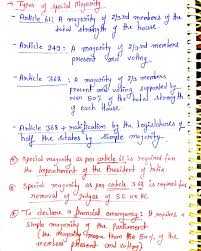 → Types of Special Majority
- Article 61: A majority of 2/3rd members of the
total strength of the house
- Article 249: A majority of 2/3rd members
present and voting
- Article 368: A majority of 2/3 members
present and voting supported by
over 50% of the total strength
of each house
- Article 368 + ratification by the legislatures of
half the states by simple majority
Special majority as per article 61 is required for
the impeachment of the President of India
Special majority as per article 368 is required for
removal of Judges of SC or HC
To declare a financial emergency: It requires a
Simple majority of the Parliament
(the majority more than 50% of the
members present and voting)